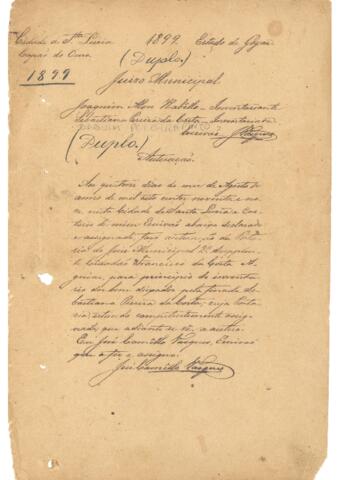 Cidade de Sta Luzia 1899. Estado de Goyaz
1899 (Dupla)
Juizo Municipal
Joaquim Alves Rabello - Inventariante
Sebastiana Pereira da Costa - Inventariada
Escrivão J Vasques
(Dupla)
Autuação.
Aos quatorze dias do mez de Agosto do
anno de mil oito centos noventa e no-
ve nesta Cidade de Santa Luzia e Car-
torio de mim Escrivão abaixo declarado
e assignado, faço
do Juiz Municipal 2º Supplen-
te Cidadão Francisco da Costa
para principio de inventa-
rio dos bens deixados pela finada Se-
bastiana Pereira da Costa, cuja
assig-
nada, que adiante se vê, a autúa.
Eu José Camillo Vasques, Escrivão
que o fez e assigna.
José Camillo Vasques